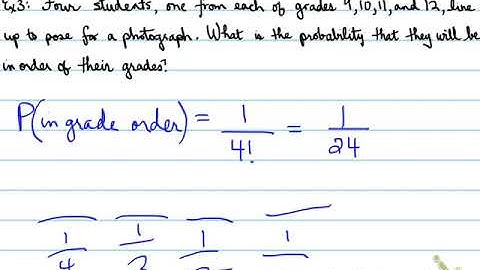 Ex3: Four students, one from each of grades 9,10,11, and 12, line
up to pose for a photograph. What is the probability that they will be
in order of their grades?
P(in grade order) = 1/4! = 1/24
1/4 1/3 1/2 1